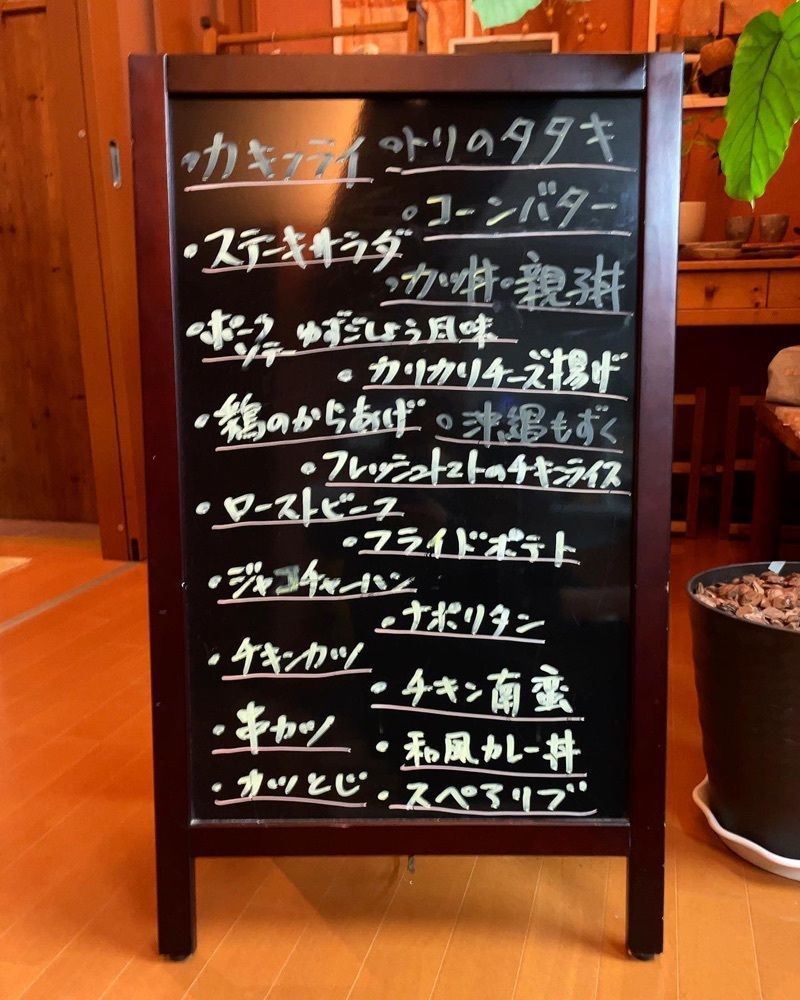 ・カキフライ
・トリのタタキ
・コーンバター
・ステーキサラダ
・カツ丼・親子丼
・ポークソテーゆずごしょう風味
・カリカリチーズ揚げ
・鶏のからあげ
・沖縄もずく
・フレッシュトマトのチキンライス
・ローストビーフ
・フライドポテト
・ジャコチャーハン
・ナポリタン
・チキンカツ
・チキン南蛮
・串カツ
・和風カレー丼
・カツとじ
・スペアリブ